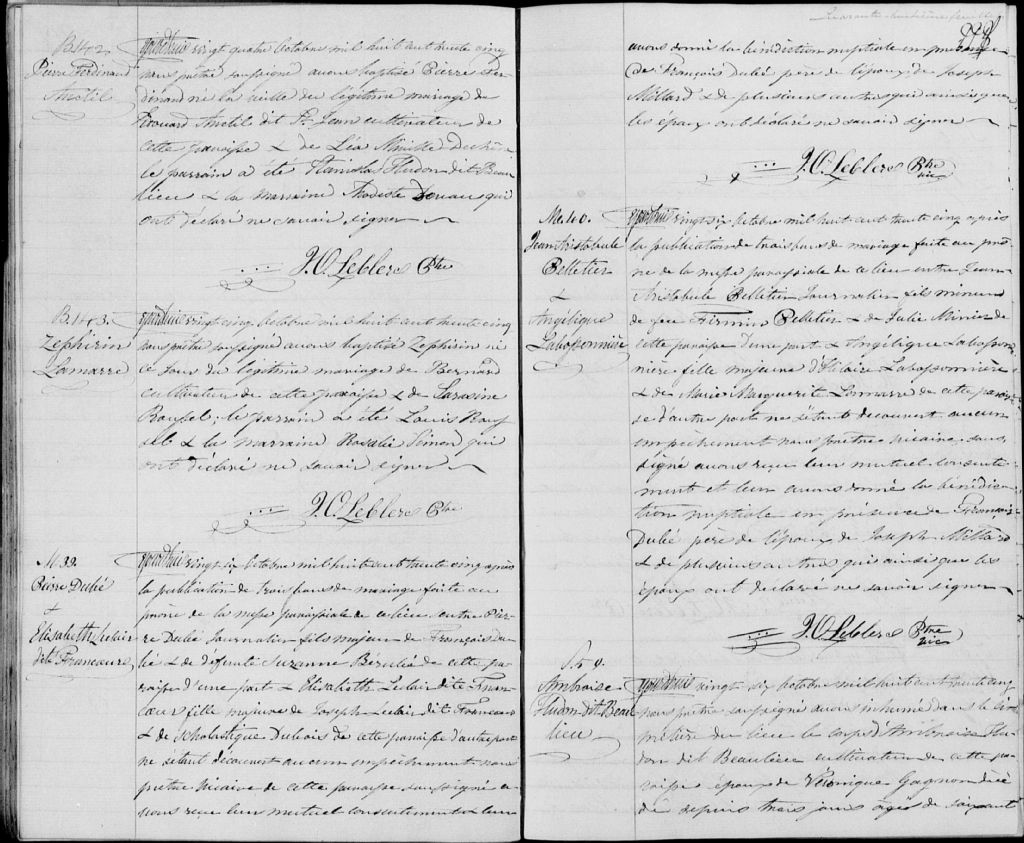 B. 142.
Pierre Ferdinand
Anctil
Aujourdhuis vingt quatre Octobre mil huit cent trente cinq
nous prêtre soussigné avons baptisé Pierre Fer
dinand né la veille du légitime mariage de
Edouard Anctil dit St. Jean cultivateur de
cette paroisse & de Léa
le parrain a été Stanislas Hudon dit Beau
lieu & la marraine Modeste qui
ont déclaré ne savoir signer
J. O. Leblerc Ptre
B. 143.
Zéphirin
Lamarre
Aujourdhuis vingt cinq Octobre mil huit cent trente cinq
nous prêtre soussigné avons baptisé Zéphirin né
ce jour du légitime mariage de Bernard
cultivateur de cette paroisse & de Sarasine
Roussel; le parrain a été Louis Rous
sel & la marraine Rosalie Simon qui
ont déclaré ne savoir signer
J. O. Leblerc Ptre
M. 39.
Pierre Dubé
&
Elisabeth Leclair
dite Francoeur
Aujourdhuis vingt six Octobre mil huit cent trente cinq après
la publication de trois bans de mariage faite au
prône de la messe paroissiale de ce lieu entre Pier
re Dubé Journalier fils majeur de François Du
bé & de défunte Suzanne Bérubé de cette pa
roisse d'une part & Elisabeth Leclair dite Fran
coeur fille majeure de Joseph Leclair dit Francoeur
& de Scholastique Dubois de cette paroisse d'autre part
ne s'étant découvert aucun empêchement nous
prêtre vicaire de cette paroisse soussigné a
vons reçu leur mutuel consentement & leur
avons donné la bénédiction nuptiale en présence
de François Dubé père de l'époux, de Joseph
Millard & de plusieurs autres qui ainsi que
les époux ont déclaré ne savoir signer
J. O. Leblerc Ptre
vic
M. 40.
Jean Aristobule
Pelletier
&
Angélique
Labossonnière
Aujourdhuis vingt six Octobre mil huit cent trente cinq après
la publication de trois bans de mariage faite au prô
ne de la messe paroissiale de ce lieu entre Jean
Aristobule Pelletier Journalier fils mineur
de feu Firmin Pelletier & de Julie de
cette paroisse d'une part & Angélique Labosson
nière fille majeure d'Hilaire Labossonnière
& de Marie Marguerite de cette parois
se d'autre part ne s'étant découvert aucun
empêchement nous prêtre vicaire sous
signé avons reçu leur mutuel consente
ment et leur avons donné la bénédic
tion nuptiale en présence de François
Dubé père de l'époux de Joseph Millard
& de plusieurs autres qui ainsi que les
époux ont déclaré ne savoir signer
J. O. Leblerc Ptre
vic
Ambroise
Hudon dit Beau
lieu
Aujourdhuis vingt six Octobre mil huit cent trente cinq
nous prêtre soussigné avons inhumé dans le ci
metière du lieu le corps d'Ambroise Hu
don dit Beaulieu cultivateur de cette pa
roisse époux de Véronique Gagnon décé
dé depuis trois jours âgé de soixante